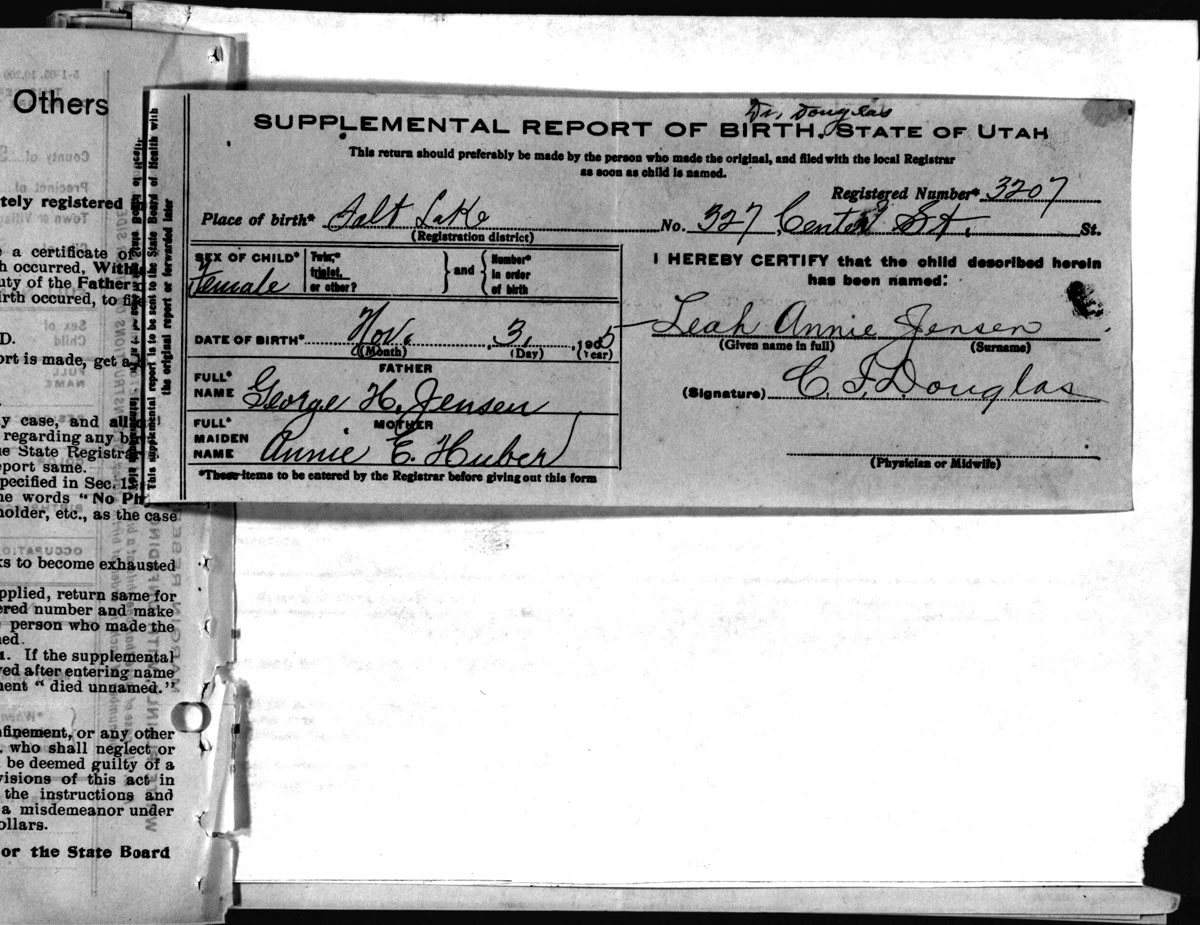 Others
tely registered
e a certificate of
h occurred, With
uty of the Father
irth occured, to fi
D.
ort is made, get a
y case, and all
regarding any b
e State Registra
eport same.
specified in Sec. 1
he words "No Ph
holder, etc., as the case
ks to become exhausted
pplied, return same for
ered number and make
person who made the
ned.
n. If the supplemental
ved after entering name
ment "died unnamed."
nfinement, or any other
, who shall neglect or
be deemed guilty of a
visions of this act in
the instructions and
a misdemeanor under
ollars.
or the State Board
This supplemental report is to be sent to the State Board of Health with
the original report or forwarded later
Dr. Douglas
SUPPLEMENTAL REPORT OF BIRTH. STATE OF UTAH
This return should preferably be made by the person who made the original, and filed with the local Registrar
as soon as child is named.
Registered Number* 3207
Place of birth* Salt Lake No. 327 Center St. St.
(Registration district)
SEX OF CHILD* Female
Twin,* triplet, or other?
and
Number* in order of birth
DATE OF BIRTH* Nov. 3, 1905
(Month) (Day) (Year)
FATHER
FULL* NAME George H. Jensen
MOTHER
FULL* MAIDEN NAME Annie E. Huber
*These items to be entered by the Registrar before giving out this form
I HEREBY CERTIFY that the child described herein
has been named:
Leah Annie Jensen
(Given name in full) (Surname)
(Signature) C. F. Douglas
(Physician or Midwife)